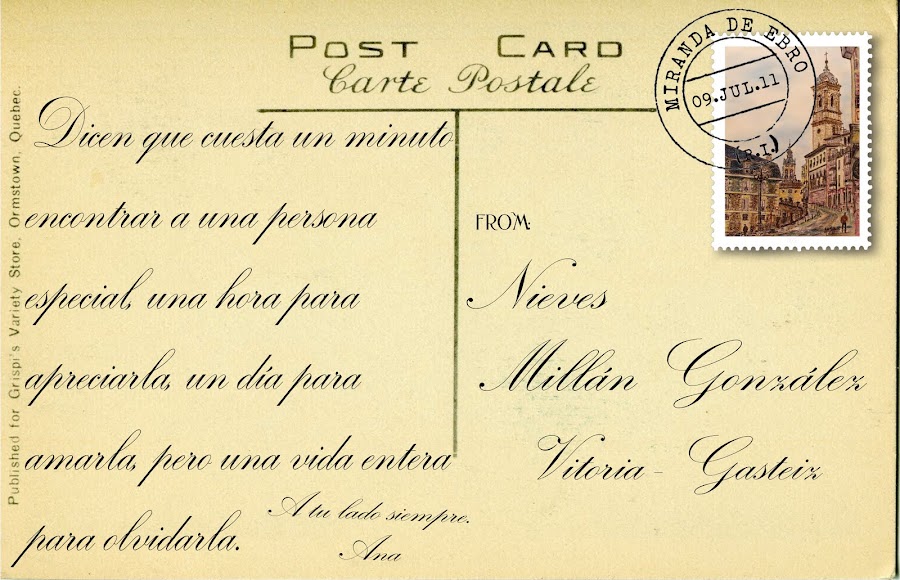 POST CARD
Carte Postale
MIRANDA DE EBRO
09.JUL.11
(R.I.)
Dicen que cuesta un minuto
encontrar a una persona
especial, una hora para
apreciarla, un día para
amarla, pero una vida entera
para olvidarla.
A tu lado siempre.
Ana
FROM:
Nieves
Millán González
Vitoria - Gasteiz
Published for Grispi's Variety Store, Ormstown, Quebec.